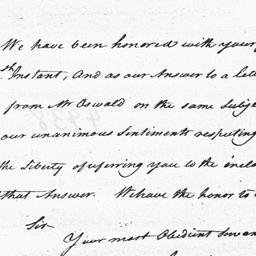 We have been honored with your
th Instant, And as our Answer to a let
from Mr Oswald on the same Subje
our unanimous Sentiments respecting
the Liberty of refering you to the inclo
that Answer. We have the honor to
Sir
Your most Obedient Servan